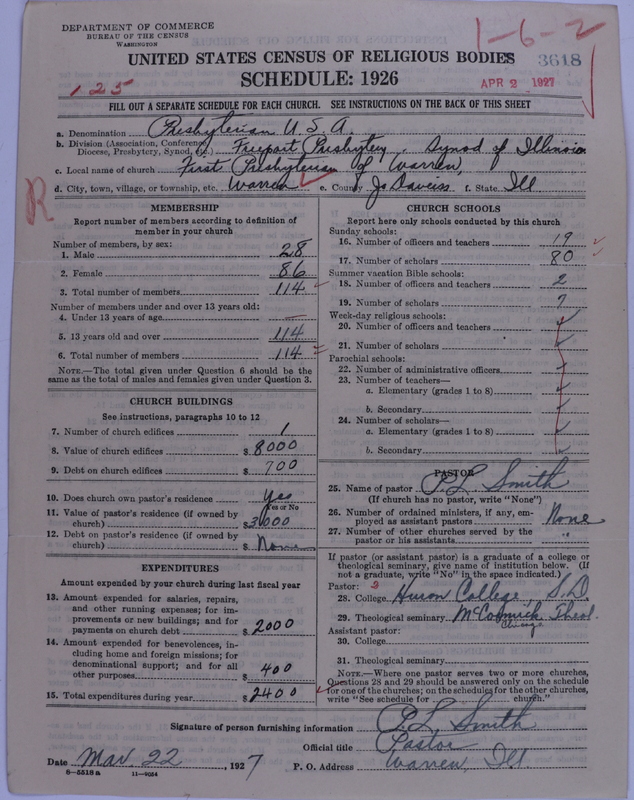 DEPARTMENT OF COMMERCE
BUREAU OF THE CENSUS
WASHINGTON
1-6-2
UNITED STATES CENSUS OF RELIGIOUS BODIES
3618
SCHEDULE: 1926
APR 2 1927
125
FILL OUT A SEPARATE SCHEDULE FOR EACH CHURCH. SEE INSTRUCTIONS ON THE BACK OF THIS SHEET
a. Denomination Presbyterian U.S.A.
b. Division (Association, Conference, Diocese, Presbytery, Synod, etc.) Freeport Presbytery, Synod of Illinois
c. Local name of church First Presbyterian of Warren,
d. City, town, village, or township, etc. Warren e. County Jo Daveiss f. State Ill
R
MEMBERSHIP
Report number of members according to definition of
member in your church
Number of members, by sex:
1. Male 28
2. Female 86
3. Total number of members 114
Number of members under and over 13 years old:
4. Under 13 years of age —
5. 13 years old and over 114
6. Total number of members 114
NOTE.—The total given under Question 6 should be the
same as the total of males and females given under Question 3.
CHURCH BUILDINGS
See instructions, paragraphs 10 to 12
7. Number of church edifices 1
8. Value of church edifices $ 8000
9. Debt on church edifices $ 700
10. Does church own pastor's residence Yes
Yes or No
11. Value of pastor's residence (if owned by
church) $ 3000
12. Debt on pastor's residence (if owned by
church) $ None
EXPENDITURES
Amount expended by your church during last fiscal year
13. Amount expended for salaries, repairs,
and other running expenses; for im-
provements or new buildings; and for
payments on church debt $ 2000
14. Amount expended for benevolences, in-
cluding home and foreign missions; for
denominational support; and for all
other purposes $ 400
15. Total expenditures during year $ 2400
CHURCH SCHOOLS
Report here only schools conducted by this church
Sunday schools:
16. Number of officers and teachers 19
17. Number of scholars 80
Summer vacation Bible schools:
18. Number of officers and teachers 2
19. Number of scholars 7
Week-day religious schools:
20. Number of officers and teachers
21. Number of scholars
Parochial schools:
22. Number of administrative officers
23. Number of teachers—
a. Elementary (grades 1 to 8)
b. Secondary
24. Number of scholars—
a. Elementary (grades 1 to 8)
b. Secondary
PASTOR
25. Name of pastor P. L. Smith
(If church has no pastor, write "None")
26. Number of ordained ministers, if any, em-
ployed as assistant pastors None
27. Number of other churches served by the
pastor or his assistants "
If pastor (or assistant pastor) is a graduate of a college or
theological seminary, give name of institution below. (If
not a graduate, write "No" in the space indicated.)
Pastor: 2
28. College Huron College, S.D.
29. Theological seminary McCormick Theol.
Chicago
Assistant pastor:
30. College
31. Theological seminary
NOTE.—Where one pastor serves two or more churches,
Questions 28 and 29 should be answered only on the schedule
for one of the churches; on the schedules for the other churches,
write "See schedule for church."
Signature of person furnishing information P. L. Smith
Official title Pastor
Date Mar 22, 1927 P. O. Address Warren, Ill.
8—5518 a 11—9054